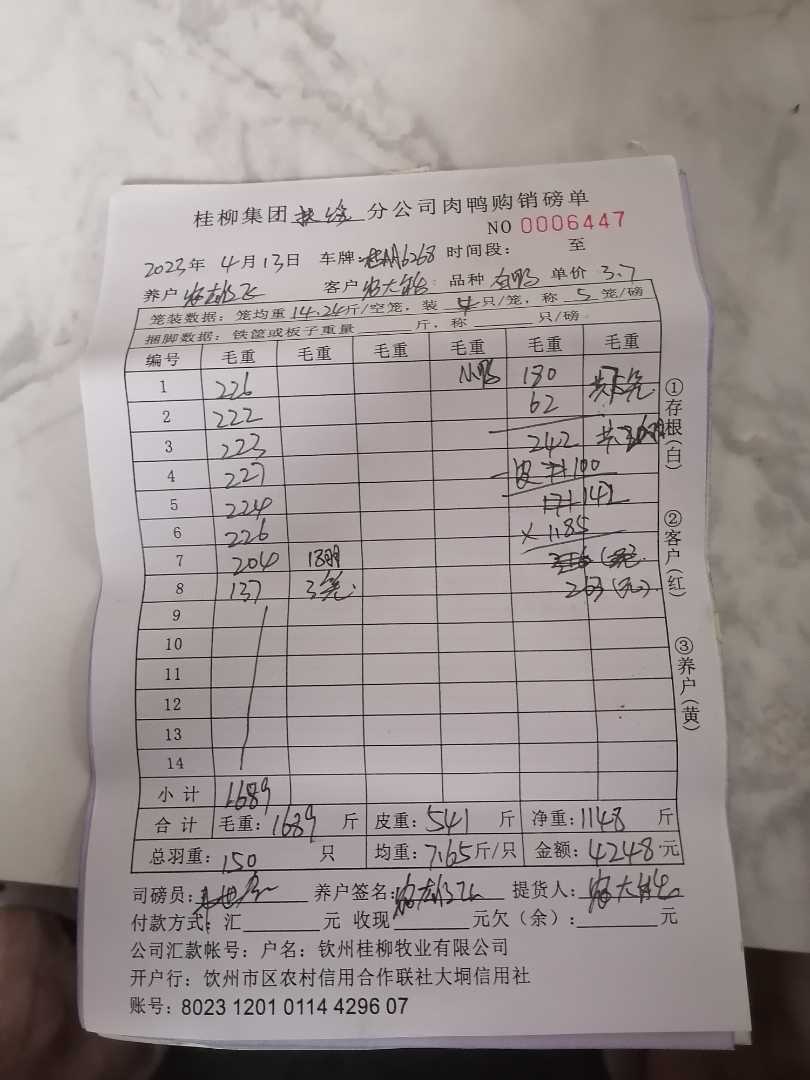 桂柳集团扶绥分公司肉鸭购销磅单
NO 0006447
2023年 4月13日 车牌: 6268 时间段: 至
养户 客户 农大 品种 肉鸭 单价 3.7
笼装数据: 笼均重 14.24 斤/空笼, 装 4 只/笼, 称 5 笼/磅
捆脚数据: 铁筐或板子重量 斤, 称 只/磅
编号 毛重 毛重 毛重 毛重 毛重 毛重
1 226 180
2 222 62
3 223 242 共
4 227 皮 100
5 224 142
6 226 ×1.85
7 204 18羽
8 137 3笼 263(元)
9
10
11
12
13
14
小计 1689
合计 毛重: 1689 斤 皮重: 541 斤 净重: 1148 斤
总羽重: 150 只 均重: 7.65 斤/只 金额: 4248 元
司磅员: 养户签名: 提货人: 农大
付款方式: 汇 元 收现 元欠(余): 元
公司汇款帐号: 户名: 钦州桂柳牧业有限公司
开户行: 饮州市区农村信用合作联社大垌信用社
账号: 8023 1201 0114 4296 07
①存根(白)
②客户(红)
③养户(黄)